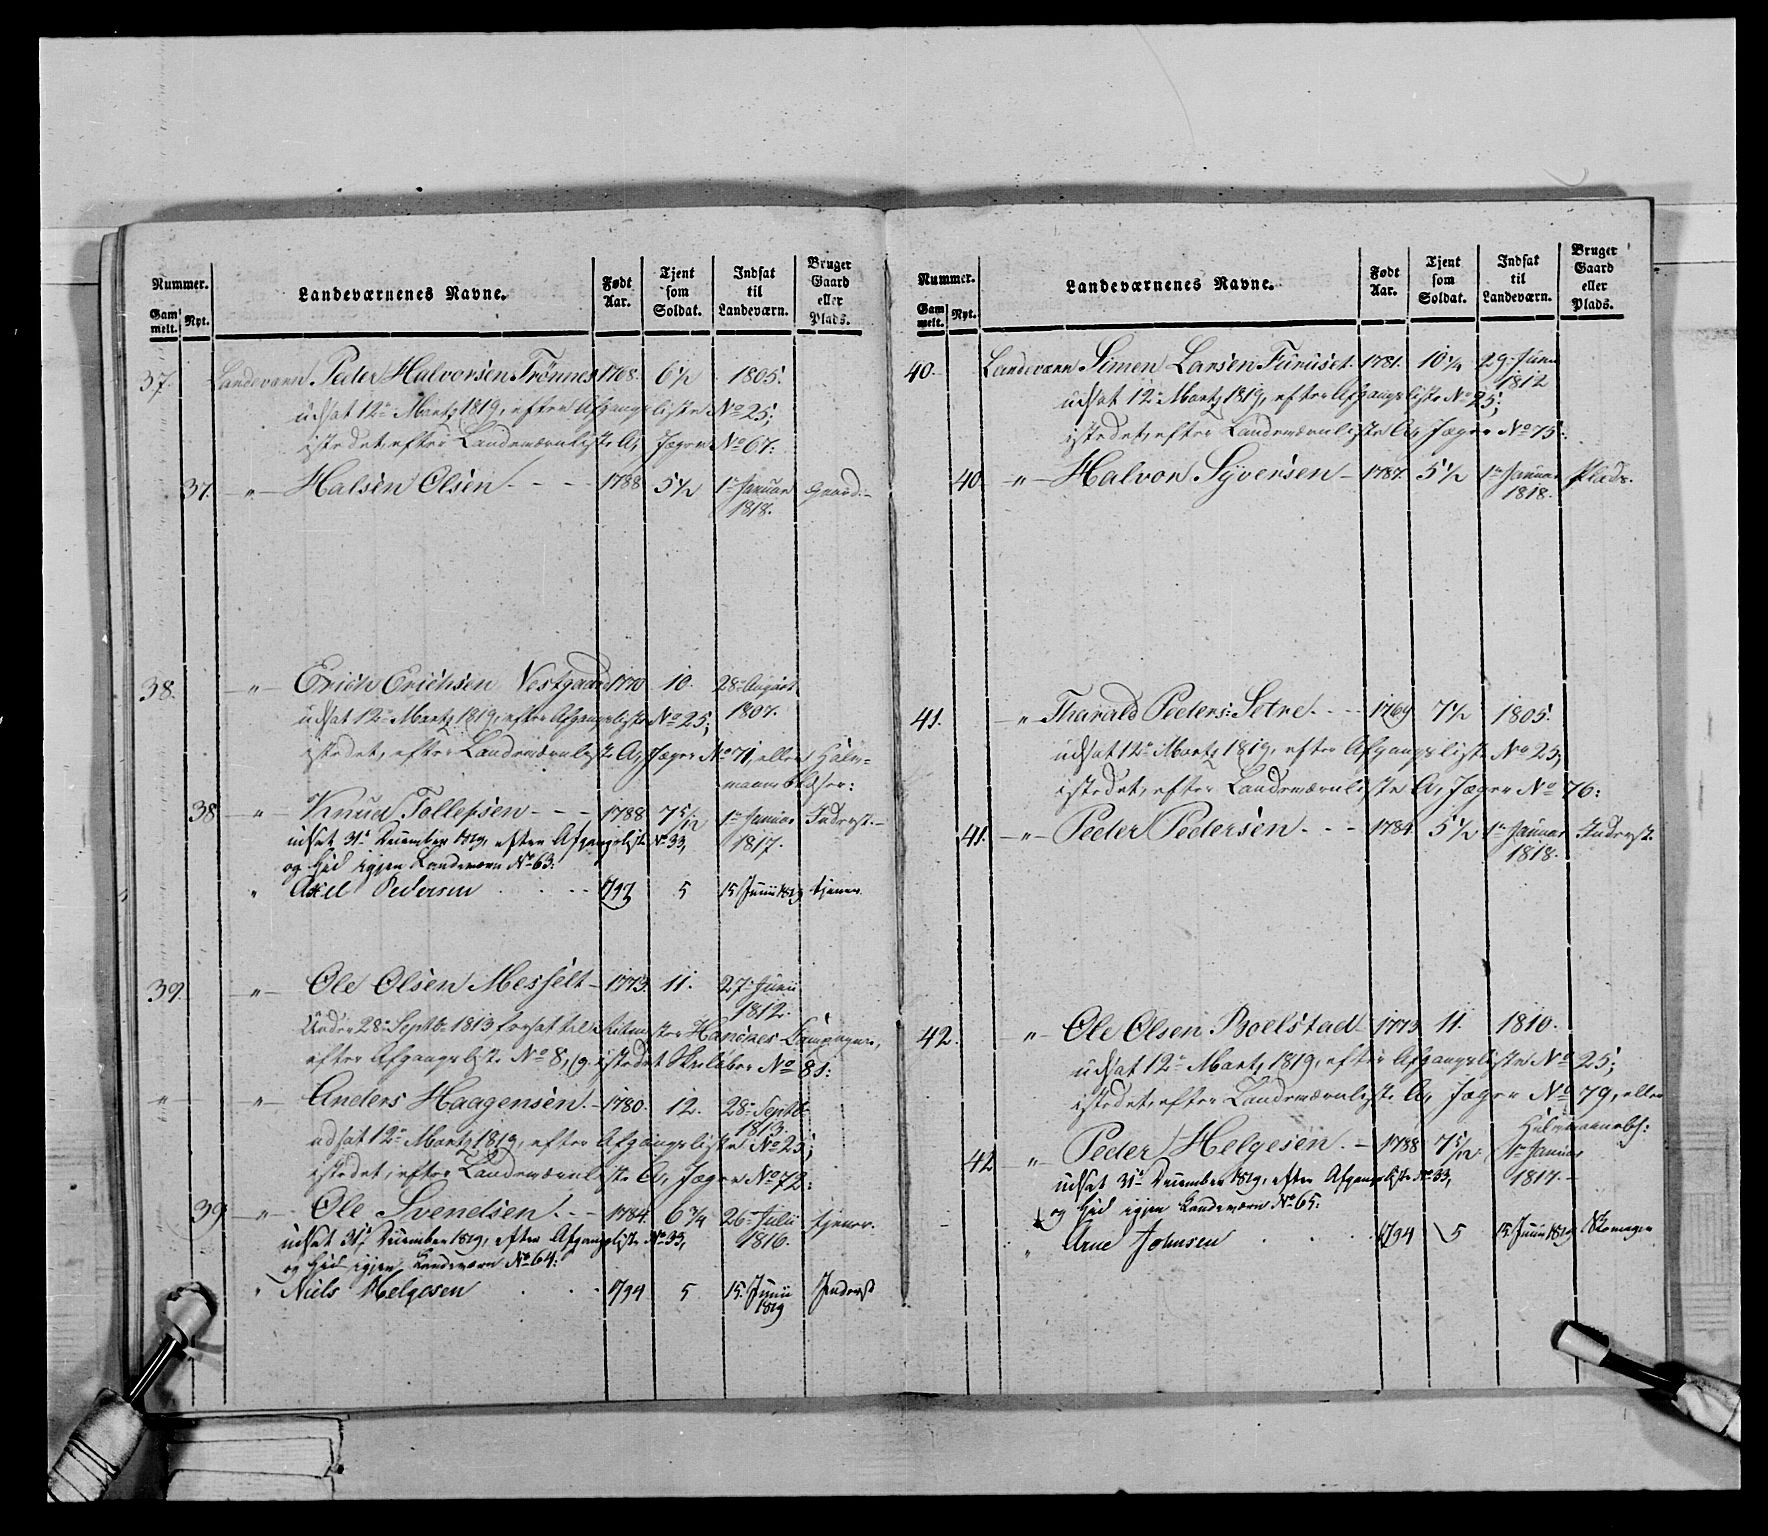 Nummer.
Gam melt.
Nyt.
Landeværnenes Navne.
Født Aar.
Tjent som Soldat.
Indsat til Landeværn.
Bruger Gaard eller Plads.
37. Landeværn Peder Halvorsen Trönnes 1768. 6½ 1805.
udsat 12te Martz 1819, efter Afgangsliste No 25;
istedet, efter Landeværnliste A, Jæger No 67:
37. -"- Halsén Olsén - - - 1788 5½ 1te Januar 1818. Gaard.-
38. -"- Erich Erichsen Vestgaard 1770 10. 28de August 1807.
udsat 12te Martz 1819, efter Afgangsliste No 25,
istedet, efter Landeværnliste A, Jæger No 71, eller
38 -"- Knud Tollefsen - - - 1788 7 5/12 1te Januar 1817. Inderst.-
udsat 31te December 1819, efter Afgangsliste No 33,
og Hid igjen Landeværn No 63:
" Axel Pedersen . . . - - 1793 5 15 Junii 1819 tjener
39. -"- Ole Olsén Messelt - 1773. 11. 27de Junii 1812.
Under 28de Septbr 1813 forsat til
efter Afgangsliste No 8, og istedet Skieløber No 81:
-"- -"- Anders Haagensén. - 1780. 12. 28de Septbr 1813.
udsat 12te Martz 1819, efter Afgangsliste No 25;
istedet, efter Landeværnliste A, Jæger No 72:
39 -"- Ole Svendsen. - - 1784. 6¾ 26de Julii 1816. tjener.
udsat 31te December 1819, efter Afgangsliste No 33,
og Hid igjen Landeværn No 64:
" Niels Helgesen . . . 1794 5 15. Junii 1819 Inderst
Nummer.
Gam melt.
Nyt.
Landeværnenes Navne.
Født Aar.
Tjent som Soldat.
Indsat til Landeværn.
Bruger Gaard eller Plads.
40. Landeværn Simen Larsén Furuset. 1781. 10¼ 29de Junii 1812
udsat 12te Martz 1819, efter Afgangsliste No 25;
istedet, efter Landeværnliste A, Jæger No 75:
40. -"- Halvor Syversén - 1787. 5½ 1te Januar 1818. Plads.
41. -" Tharald Peders: Setre. - - - 1769 7½ 1805.
udsat 12te Martz 1819, efter Afgangsliste No 25,
istedet, efter Landeværnliste A, Jæger No 76:
41. -"- Peder Pedersén. - - - 1784. 5½ 1te Januar 1818. Inderst.
42. -" Ole Olsen Boelstad - 1773 11. 1810.
udsat 12te Martz 1819, efter Afgangsliste No 25;
istedet, efter Landeværnliste A, Jæger No 79, eller
42 " Peder Helgesén. - - 1788 7 5/12 1te Januar 1817.-
udsat 31te December 1819, efter Afgangsliste No 33,
og Hid igjen Landeværn No 65:
" Arne Johnsen . . . 1794 5 15. Junii 1819 Skomager